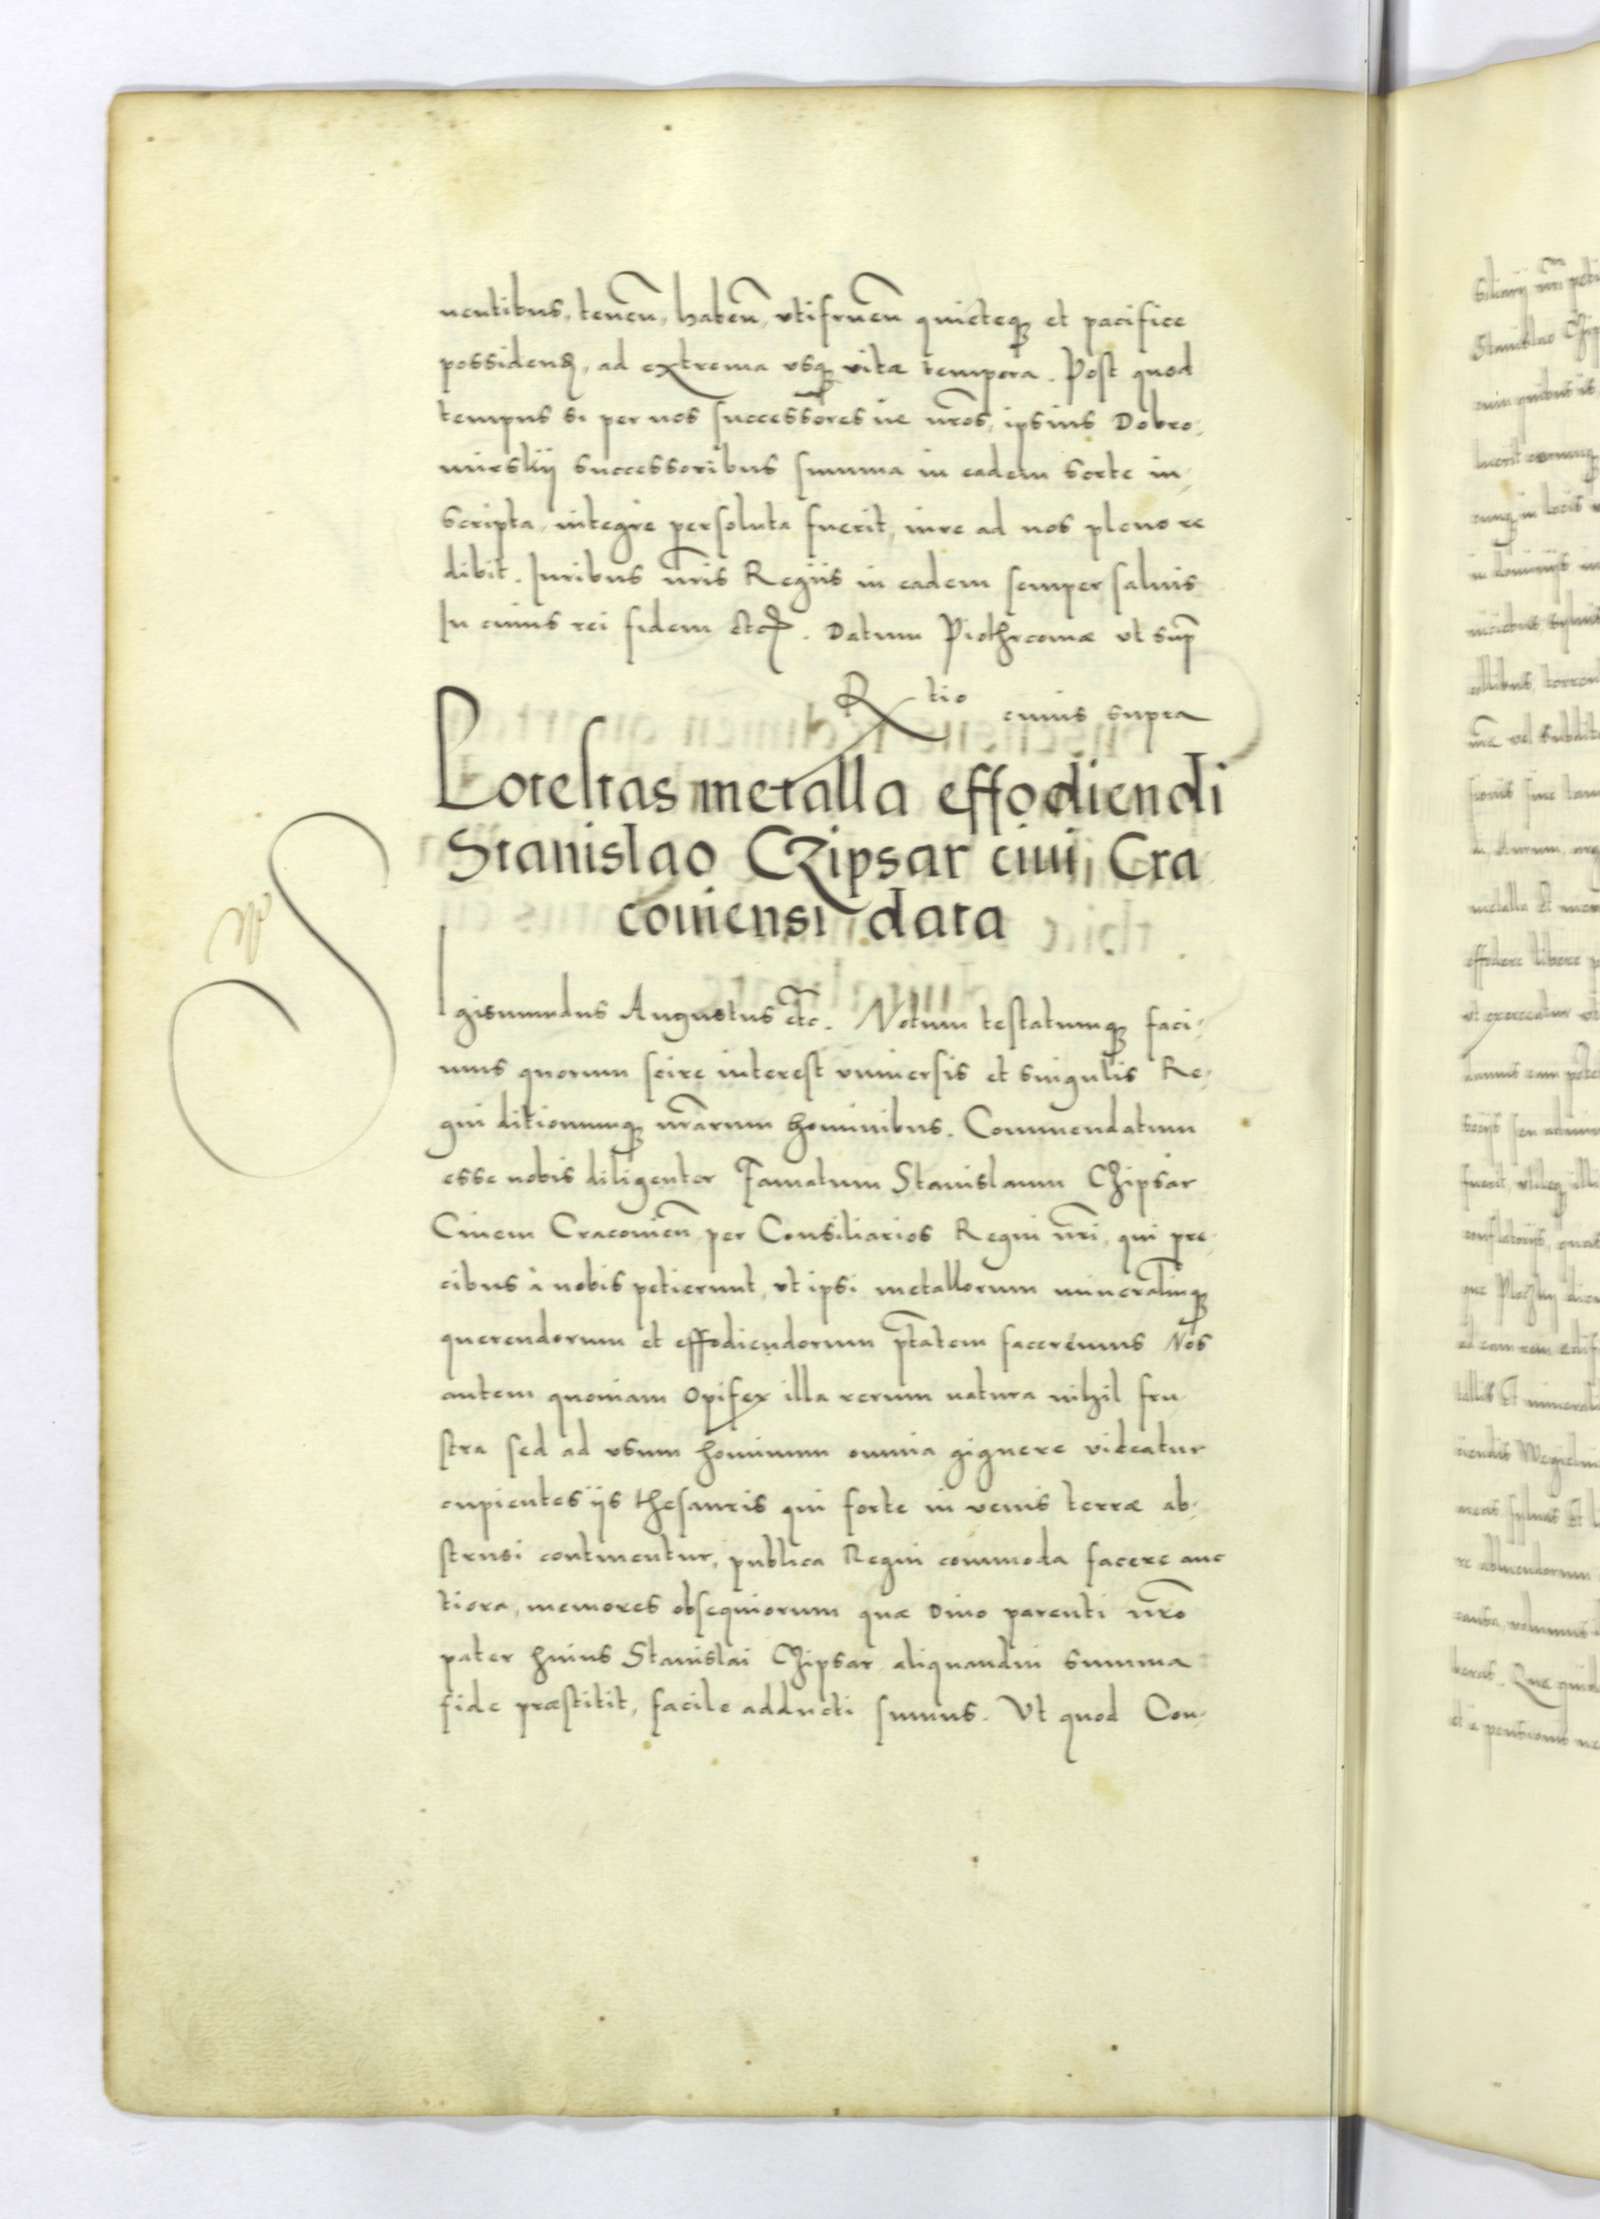 uentibus, teneñ, habeñ, vtifrueñ quieteq; et pacifice
possideñ, ad extrema vsq; vitæ tempora. Post quod
tempus si per nos successores ue nr̃os, ipsius Dobro,
mirskij successoribus summa in eadem sorte in,
scripta, integre persoluta fuerit, iure ad nos pleno re
dibit. Iuribus nr̃is Regiis in eadem semper saluis
In cuius rei fidem etc. Datum Piothrcouiæ vt sup̃
R tio cuius supra
Potestas metalla effodiendi
Stanislao Czipsar ciui Cra
couiensi data
S
gismundus Augustus etc. Notum testatumq; faci,
mus quorum scire interest vniuersis et singulis Re,
gni ditionumq; nr̃arum hominibus. Commendatum
esse nobis diligenter Famatum Stanislaum Czipsar
Ciuem Cracouieñ per Consiliarios Regni nr̃i, qui pre,
cibus à nobis petierunt, vt ipsi metallorum mineraliumq;
querendorum et effodiendorum ptatem faceremus Nos
autem quoniam opifex illa rerum natura nihil fru
stra sed ad vsum hominum omnia gignere videatur
cupientes ijs thesauris qui forte in venis terræ ab,
strusi continentur, publica Regni commoda facere auc
tiora, memores obsequiorum quæ Diuo parenti nr̃o
pater huius Stanislai Czipsar aliquandiu summa
fide præstitit, facile adducti sumus. Vt quod Con,